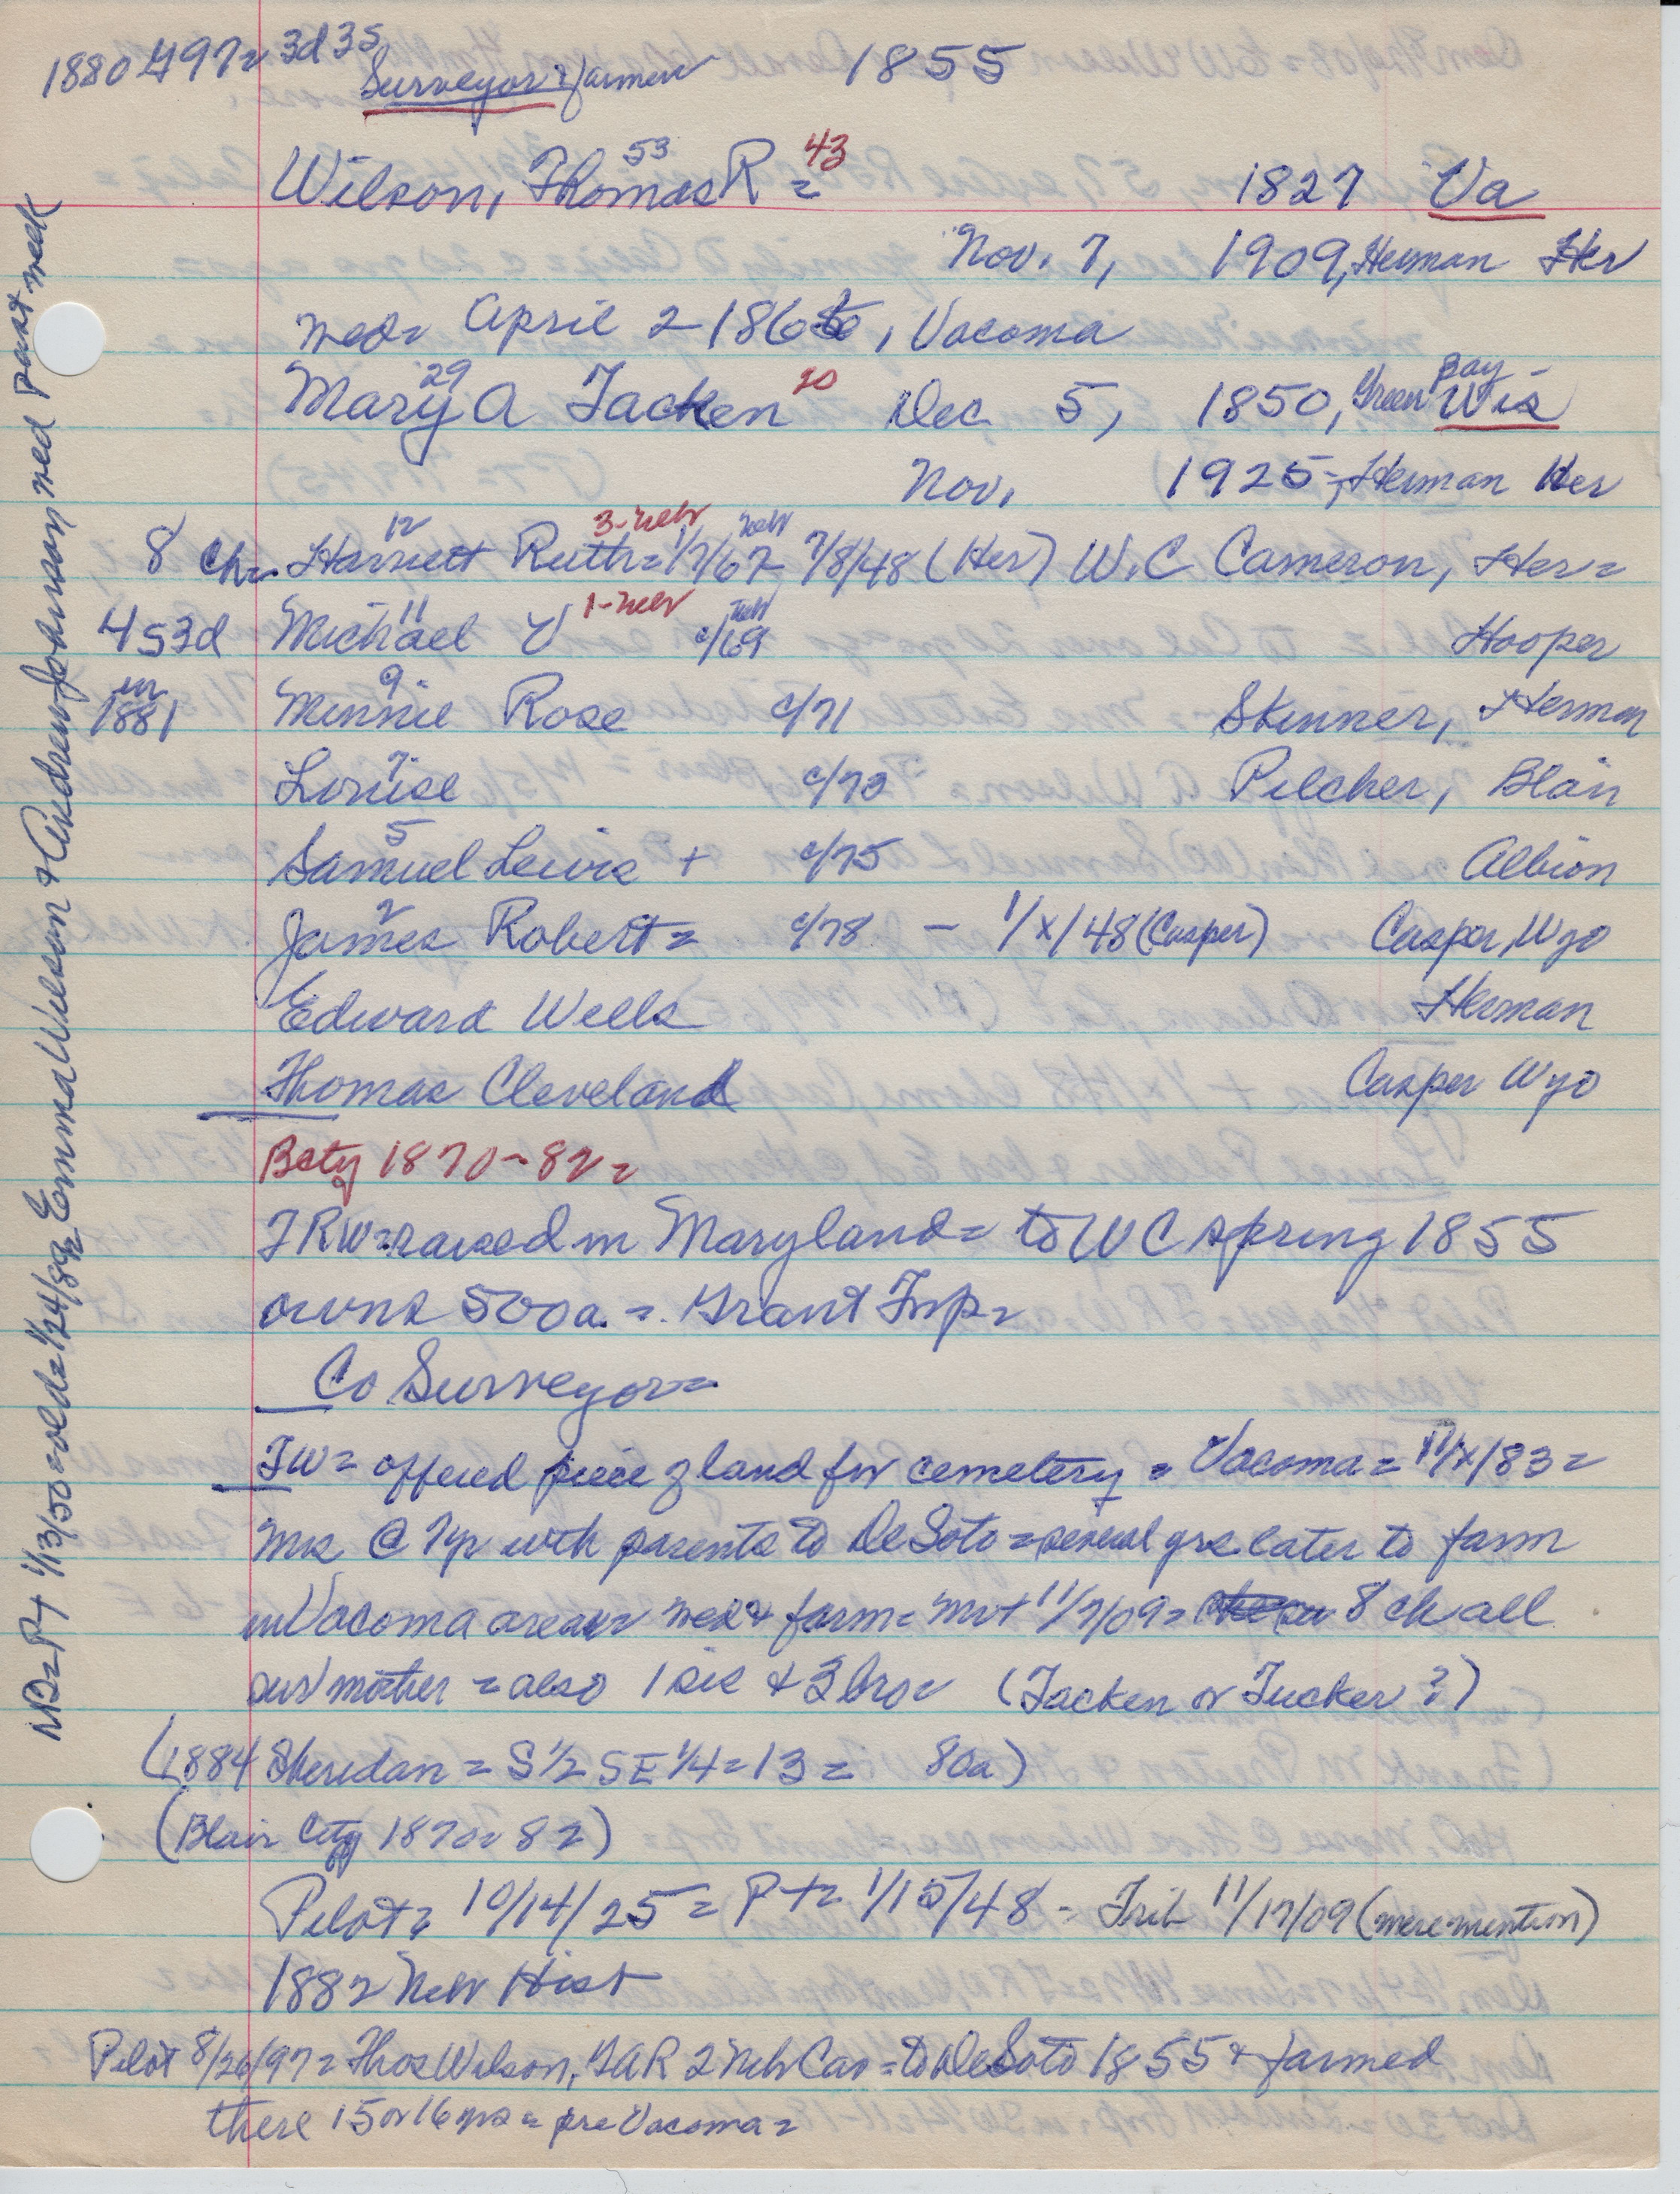 1880 G97= 3d35
Surveyor & farmer 1855
53 43
Wilson, Thomas R = 1827 Va
Nov. 7, 1909, Herman Her
med= April 2 186 , Vacoma
29 20 Bay
Mary A Tacken Dec 5, 1850, Green Wis
Nov. 1925, Herman Her
12 3-Neb Neb
8 ch. Harriett Ruth= 1/7/67 7/8/48 (Her) W.C Cameron, Her=
11 1-Neb Neb
4s3d Michael V c/69 Hooper
in 9
1881 Minnie Rose c/71 Skinner, Herman
7
Louise c/73 Pilcher, Blair
5
Samuel Lewis + c/75 Albion
2
James Robert= c/78 – 1/x/48 (Casper) Casper, Wyo
Edward Wells Herman
Thomas Cleveland Casper Wyo
Bcty 1870-82=
TRW=raised in Maryland= to WC spring 1855
owns 500a. = Grant Twp=
Co Surveyor=
TW= offered piece of land for cemetery = Vacoma = 11/x/83=
Mrs @ 7yr with parents to DeSoto=several yrs later to farm
in Vacoma area= med & farm= Mr + 11/7/09= 8 ch all
surv mother = also 1 sis & 3 bro= (Tacken or Tucker?)
(1884 Sheridan = S 1/2 SE 1/4=13= 80a)
(Blair City 1870=82)
Pilot= 10/14/25= PT= 1/15/48 - Trib 11/17/09 (mere mention)
1882 Neb Hist
Pilot 8/26/97= Thos Wilson, GAR 2 Neb Cav=to DeSoto 1855 & farmed
there 15 or 16 yrs = pre Vacoma=
1/13/50=old=1/24/89= Emma Wilson & Andrew Johnson med past week